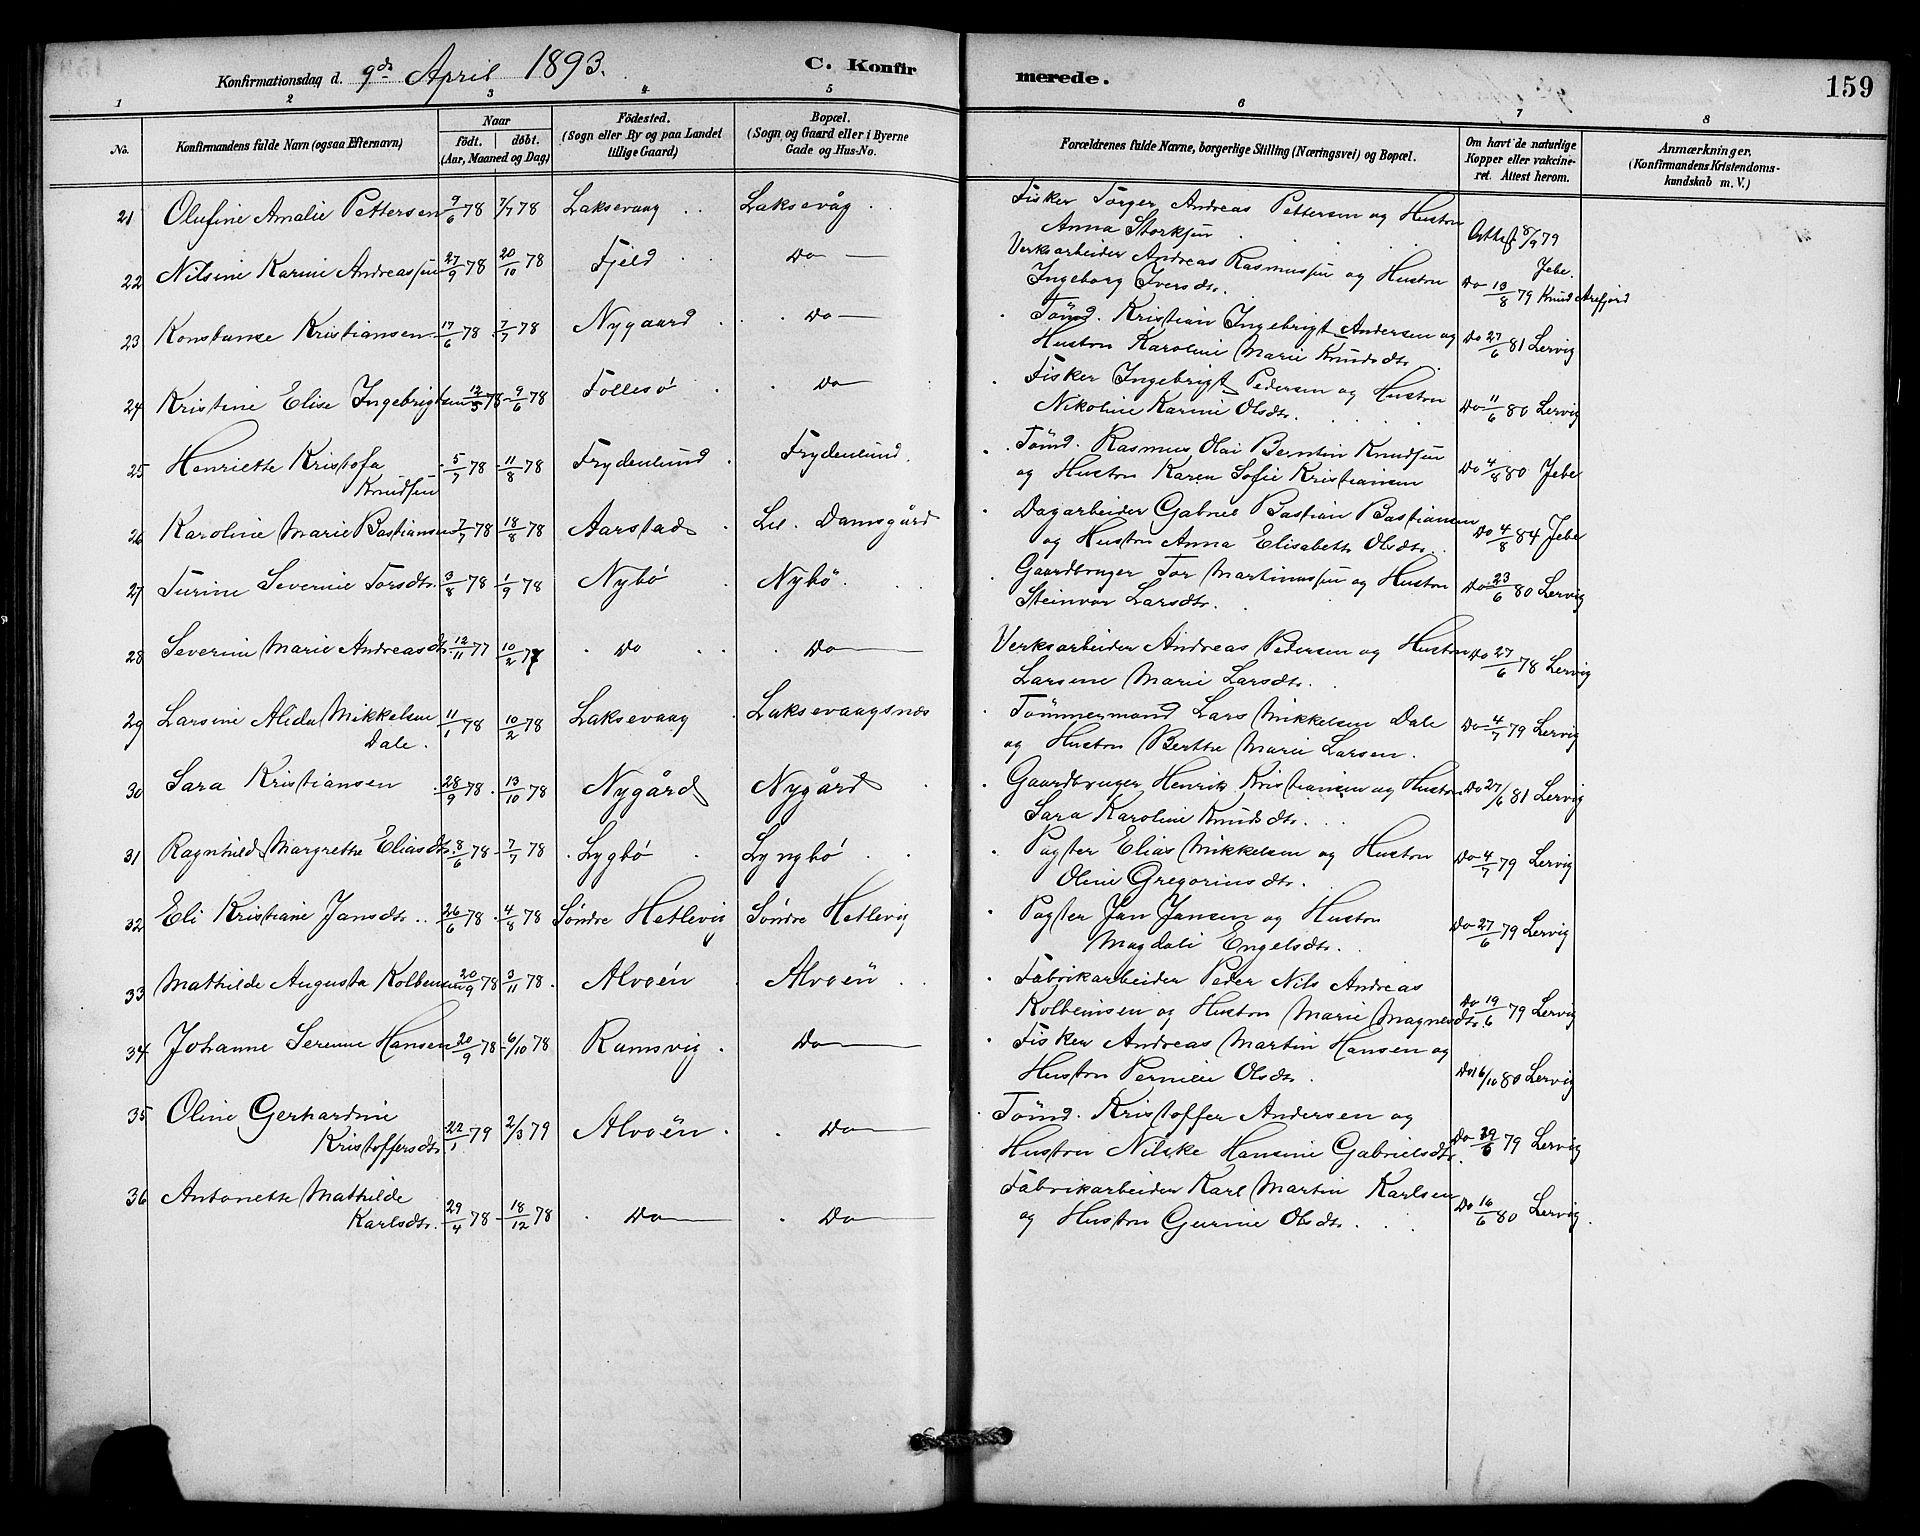 Konfirmationsdag d. 9de April 1893. C. Konfirmerede. 159
1 2 3 4 5 6 7 8
No. Konfirmandens fulde Navn (ogsaa Efternavn) Naar født. døbt. (Aar, Maaned og Dag) Fødested. (Sogn eller By og paa Landet tillige Gaard) Bopæl. (Sogn og Gaard eller i Byerne Gade og Hus-No. Forældrenes fulde Navne, borgerlige Stilling (Næringsvei) og Bopæl. Om havt de naturlige Kopper eller vakcineret. Attest herom. Anmærkninger. (Konfirmandens Kristendomskundskab m. V.)
21 Olufine Amalie Pettersen 9/6 78 7/7 78 Laksevaag Laksevåg Fisker Torger Andreas Pettersen og Hustru
Anna Storksen Attest 8/9 79 Jebe.
22 Nilsine Karine Andreassen 27/9 78 20/10 78 Fjeld Do Verksarbeider Andreas Rasmussen og Hustru
Ingeborg Iversdtr. Do 13/8 79 Knud Arefjord
23 Konstanse Kristiansen 17/6 78 7/7 78 Nygaard Do Tømd. Kristian Ingebrigt Andersen og
Hustru Karoline Marie Knudsdtr. Do 27/6 81 Lervig
24 Kristine Elise Ingebrigtsen 12/5 78 9/6 78 Follesø Do Fisker Ingebrigt Pedersen og Hustru
Nikoline Karine Olsdtr. Do 11/6 80 Lervig
25 Henriette Kristofa
Knudsen 5/7 78 11/8 78 Frydenlund Frydenlund Tømd. Rasmus Olai Berntin Knudsen
og Hustru Karen Sofie Kristiansen Do 4/8 80 Jebe
26 Karoline Marie Bastiansen 7/7 78 18/8 78 Aarstad Lil. Damsgård Dagarbeider Gabriel Bastian Bastiansen
og Hustru Anna Elisabeth Olsdtr. Do 4/8 84 Jebe
27 Turine Severine Torsdtr. 3/8 78 1/9 78 Nybø Nybø. Gaardbruger Tor Martinussen og Hustru
Steinvor Larsdtr. Do 23/6 80 Lervig
28 Severine Marie Andreasdtr. 12/11 77 10/2 78 Do Do Verksarbeider Andreas Pedersen og Hustru
Larsine Marie Larsdtr. Do 27/6 78 Lervig
29 Larsine Alida Mikkelsen
Dale. 11/1 78 10/2 78 Laksevaag Laksevaagsnes Tømmermand Lars Mikkelsen Dale
og Hustru Berthe Marie Larsen. Do 4/7 79 Lervig
30 Sara Kristiansen 28/9 78 13/10 78 Nygård Nygård Gaardbruger Henrik Kristiansen og Hustru
Sara Karoline Knudsdtr. Do 27/6 81 Lervig
31 Ragnhild Margrethe Eliasdtr. 8/6 78 7/7 78 Lygbø Lyngbø Pagter Elias Mikkelsen og Hustru
Oline Gregoriusdtr. Do 4/7 79 Lervig
32 Eli Kristiane Jansdtr. 26/6 78 4/8 78 Søndre Hetlevig Søndre Hetlevig Pagter Jan Jansen og Hustru
Magdali Engelsdtr. Do 27/6 79 Lervig
33 Mathilde Augusta Kolbensen 20/9 78 3/11 78 Alvøen Alvøen Fabrikarbeider Peder Nils Andreas
Kolbeinsen og Hustru Marie Magnesdtr. Do 19/6 79 Lervig
34 Johanne Serenne Hansen 20/9 78 6/10 78 Ramsvig Do Fisker Andreas Martin Hansen og
Hustru Pernille Olsdtr. Do 16/10 80 Lervig
35 Oline Gerhardine
Kristoffersdtr. 22/1 79 2/3 79 Alvøen Do Tømd. Kristoffer Andersen og
Hustru Nilske Hansine Gabrielsdtr. Do 29/6 79 Lervig
36 Antonette Mathilde
Karlsdtr. 29/4 78 18/12 78 Do Do Fabrikarbeider Karl Martin Karlsen
og Hustru Gurine Olsdtr. Do 16/6 80 Lervig.